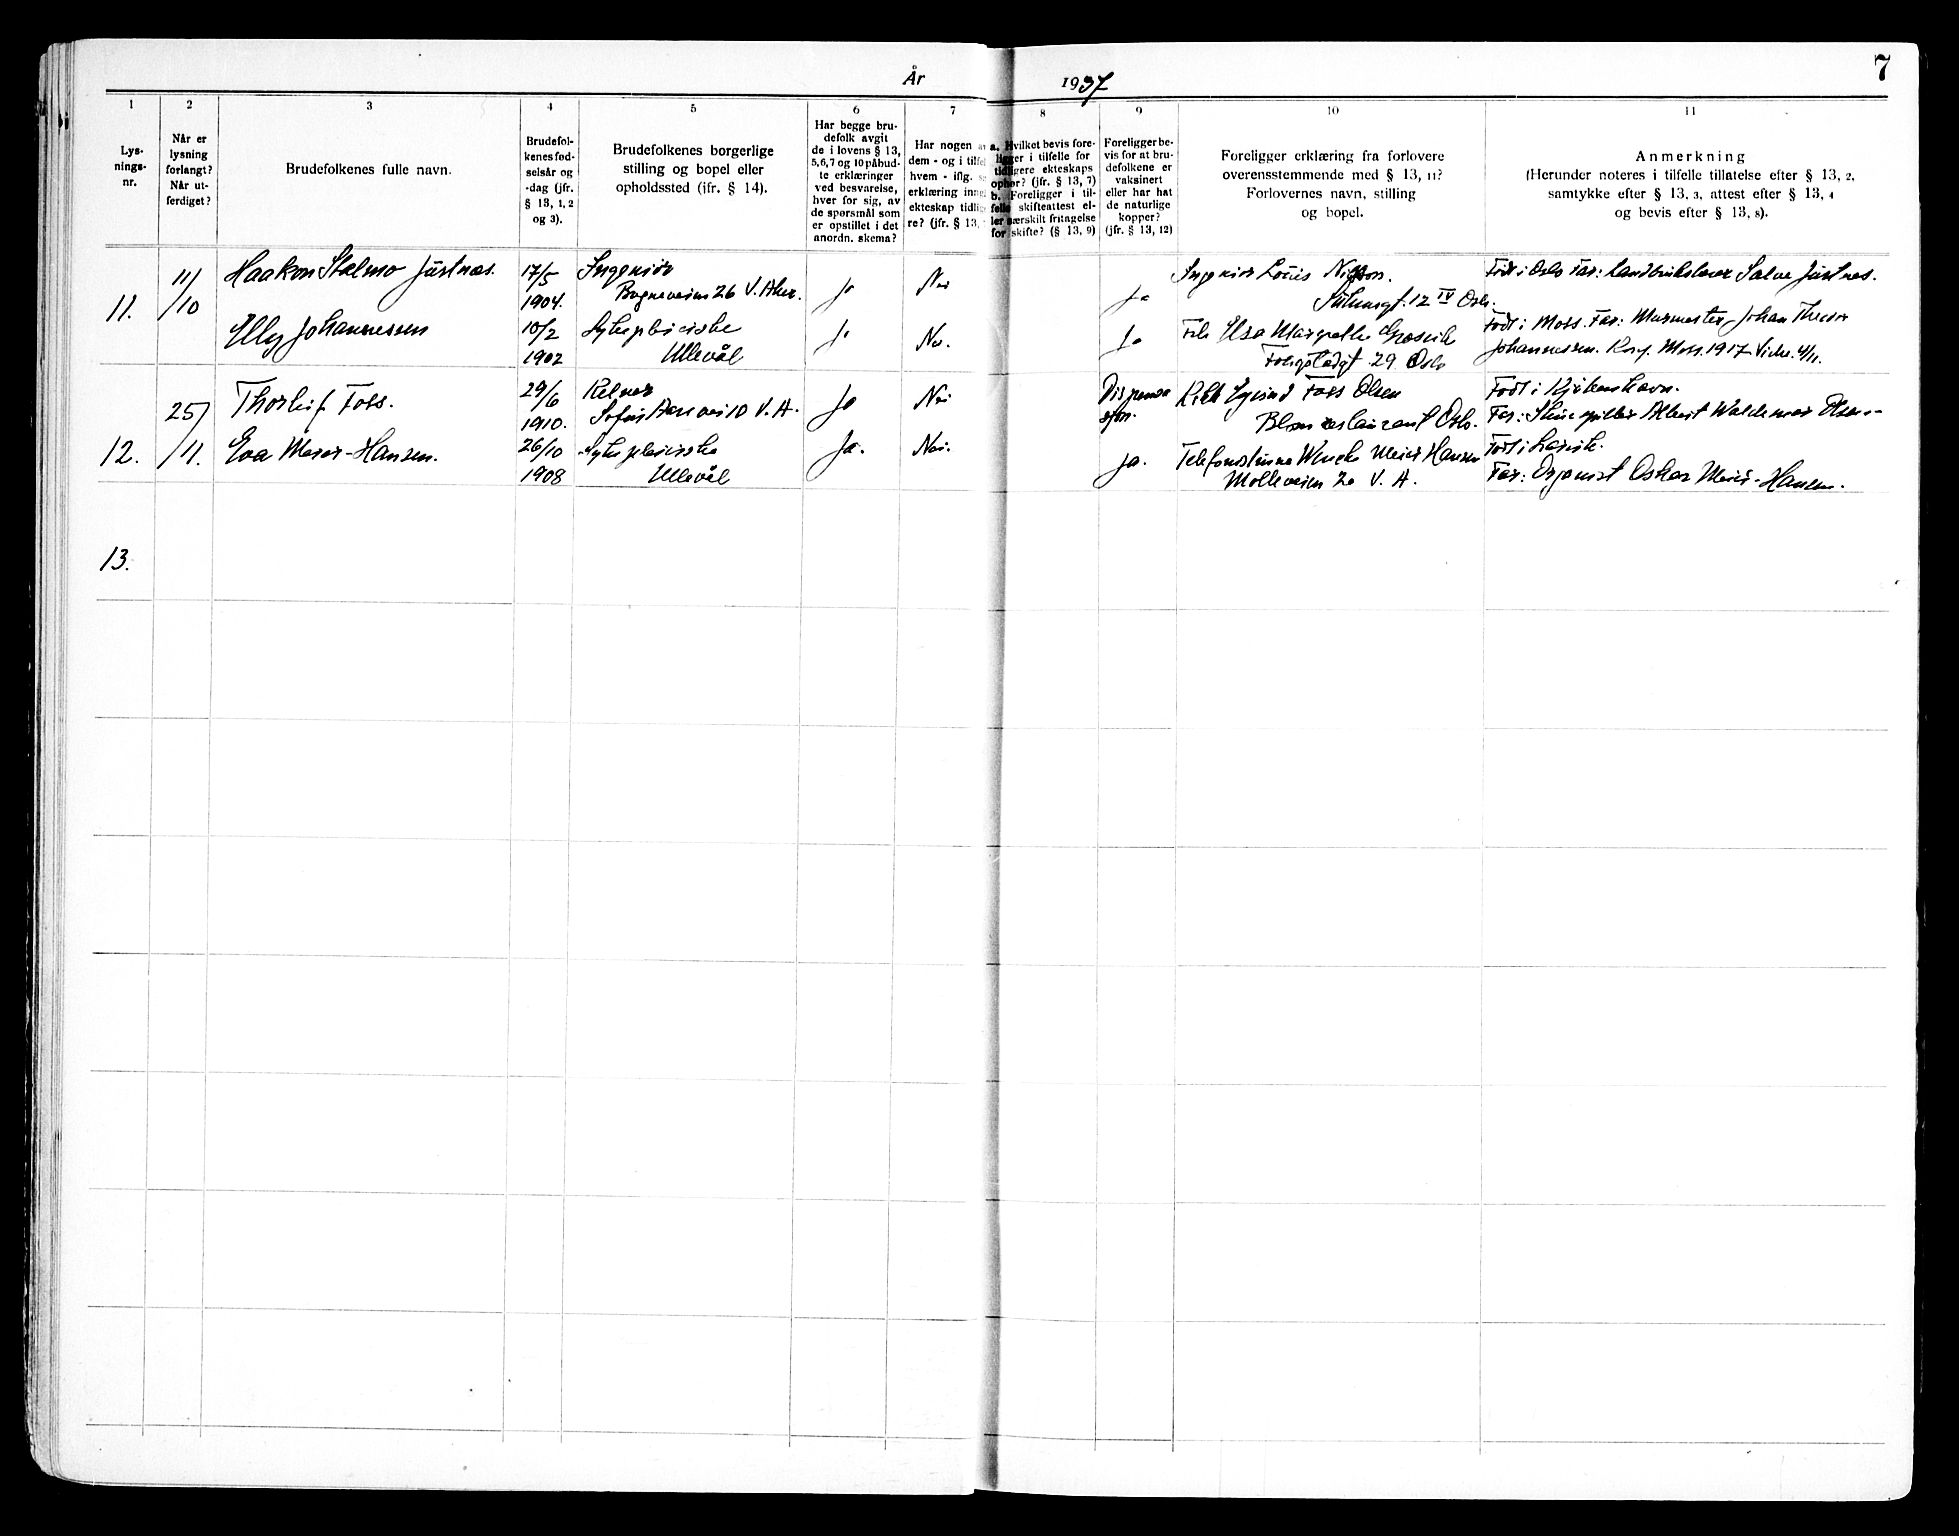 År 1937
7
1 2 3 4 5 6 7 8 9 10 11
Lys-
nings-
nr.
Når er
lysning
forlangt?
Når ut-
ferdiget?
Brudefolkenes fulle navn.
Brudefol-
kenes fød-
selsår og
-dag (jfr.
§ 13, 1, 2
og 3).
Brudefolkenes borgerlige
stilling og bopel eller
opholdssted (ifr. § 14).
Har begge bru-
defolk avgit
de i lovens § 13,
5, 6, 7 og 10 påbud-
te erklæringer
ved besvarelse,
hver for sig, av
de spørsmål som
er opstillet i det
anordn. skema?
Har nogen av
dem - og i tilfel
hvem - iflg.
erklæring inng
ekteskap tidlig
re? (jfr. § 13,
a. Hvilket bevis fore-
ligger i tilfelle for
tidligere ekteskaps
ophør? (jfr. § 13, 7)
b. Foreligger i til-
felle skifteattest el-
ler særskilt fritagelse
for skifte? (§ 13, 9)
Foreligger be-
vis for at bru-
defolkene er
vaksinert
eller har hat
de naturlige
kopper?
(jfr. § 13, 12)
Foreligger erklæring fra forlovere
overensstemmende med § 13, 11?
Forlovernes navn, stilling
og bopel.
Anmerkning
(Herunder noteres i tilfelle tillatelse efter § 13, 2,
samtykke efter § 13, 3, attest efter § 13, 4
og bevis efter § 13, 8).
11.
11/
/10
Haakon Stalmo Justnæs.
17/5
1904.
Ingeniør
Bogneveien 26 V. Aker.
Ja
Nei
Ja
Ingeniør Louis
12 IV Oslo.
Født i Oslo Far: Landbrukslærer Salve Justnes.
Elly Johannessen
10/2
1902
Sykepleierske
Ullevål
Ja
Nei.
Ja
Frk Elsa Margrethe
29 Oslo
Født i Moss. Far: Murmester Johan Theodor
Johannessen. Konf. Moss. 1917. Vielse. 4/11.
12.
25/
/11.
Thorleif Foss.
29/6
1910.
Kelner
Sofus 10 V. A.
Ja
Nei
Dispensa
sjon.
Eyvind Foss Olsen
Oslo.
Født i Kjøbenhavn.
Far: Skuespiller Albert Waldemar Olsen
Eva Meier-Hansen.
26/10
1908
Sykepleierske
Ullevål
Ja.
Nei.
Ja.
Telefonistinne Wenche Meier Hansen
Mølleveien 2a V. A.
Født i Larvik.
Far: Organist Oskar Meier-Hansen.
13.